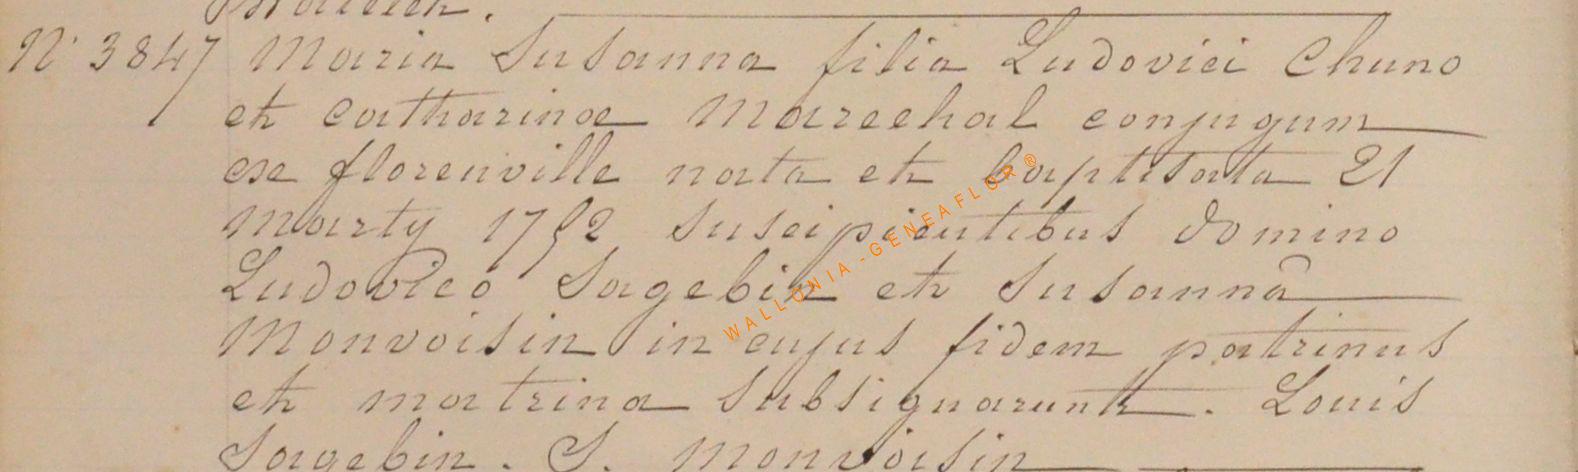 N° 3847 Maria Susanna filia Ludovici Chuno
et catharinæ Marechal conjugum
ex florenville nata et baptisata 21
Martij 1752 suscipientibus domino
Ludovico Sagebin et Susannâ
Monvoisin in cujus fidem patrinus
et matrina subsignarunt. Louis
Sagebin. S. Monvoisin
WALLONIA-GENEAFLOR®